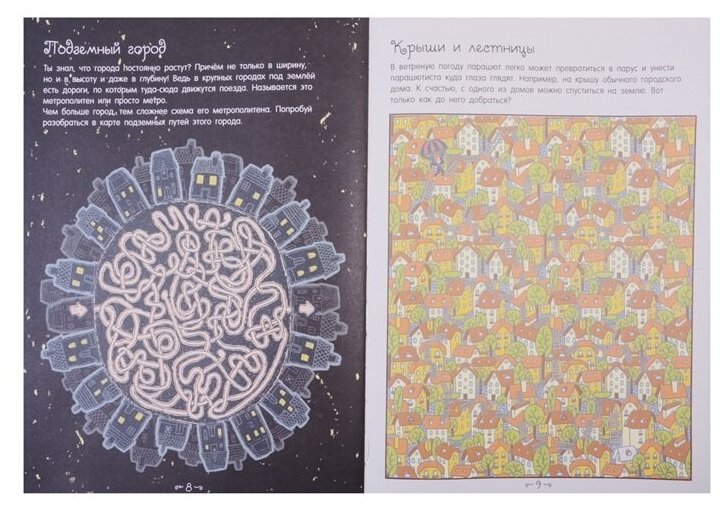 Подземный город
Ты знал, что города постоянно растут? Причём не только в ширину,
но и в высоту и даже в глубину! Ведь в крупных городах под землёй
есть дороги, по которым туда-сюда движутся поезда. Называется это
метрополитен или просто метро.
Чем больше город, тем сложнее схема его метрополитена. Попробуй
разобраться в карте подземных путей этого города.
8
Крыши и лестницы
В ветреную погоду парашют легко может превратиться в парус и унести
парашютиста куда глаза глядят. Например, на крышу обычного городского
дома. К счастью, с одного из домов можно спуститься на землю. Вот
только как до него добраться?
9